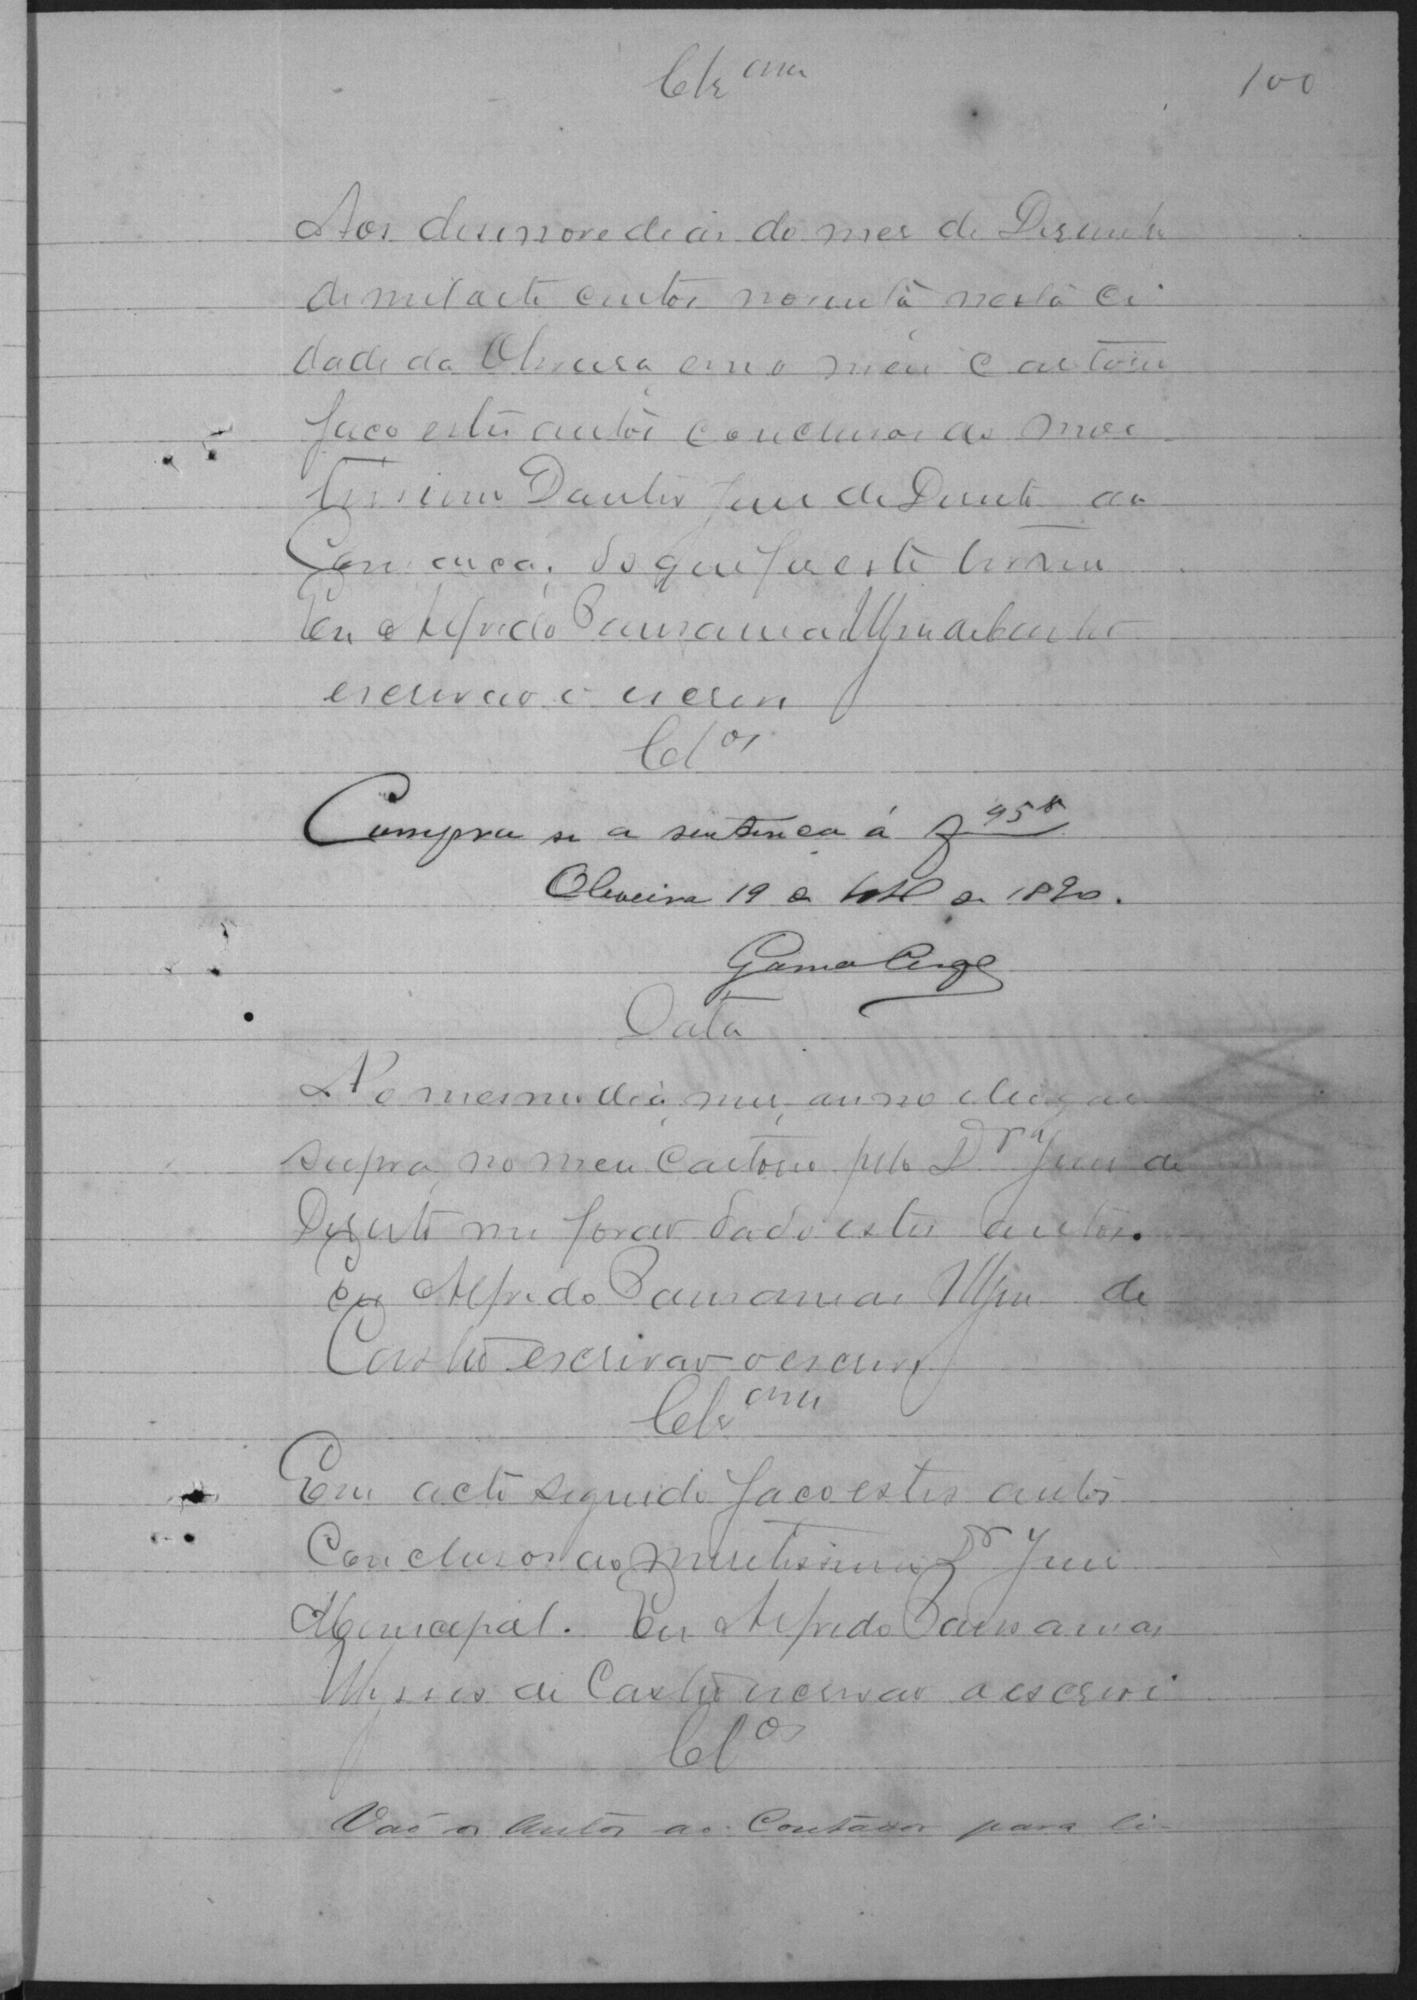 Clsam
100
Aos desenove dias do mes de Desembr
de mil oito centos noventa nesta ci
dade da Oliveira em o meu Cartorio
faco estes autos conclusos ao Mere
tissimo Doutor Juis de Direito da
Comarca, do que fis este termo
Eu Alfredo Pausanias de Castro
escrivão o escrevi
Clos
Cumpra se a sentença á f 95 v
Oliveira 19 de de 1890.
Gama Cerq
Data
No mesmo dia, mes, anno e lugar
supra, no meu Cartorio pelo Dr Juis de
Direito me forão dado estes autos.
Eu Alfredo Pausanias de
Castro escrivão o escrevi
Clsam
Em acto seguido faco estes autos
Conclusos ao Meretissimo Dr Juis
Municipal. Eu Alfredo Pausanias
Ulysses de Castro escrivão o escrevi
Clos
Vão os Autos ao Contador para li-